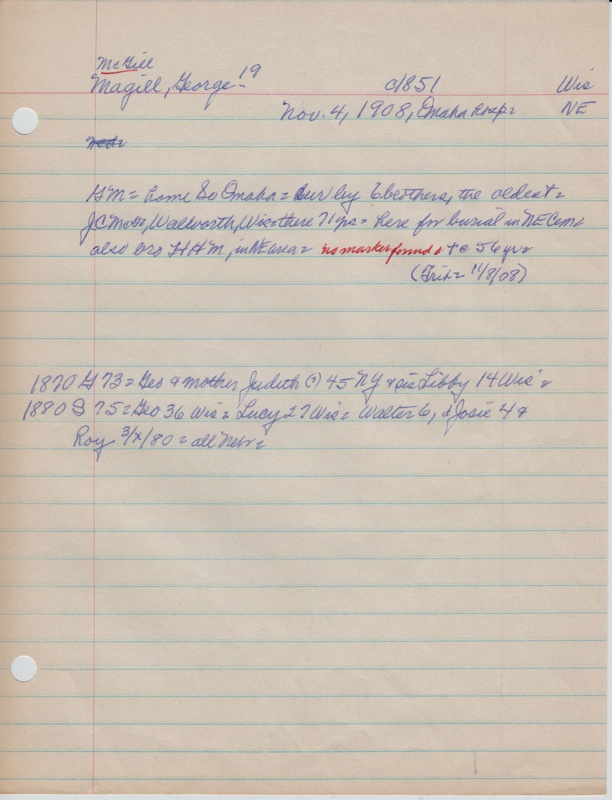 McGill
Magill, George - 19 c/851 Wis
Nov. 4, 1908, Omaha Hosp = NE
GM = home So Omaha = sur by 6 brothers, the oldest =
J C Mc, Wallworth, Wis = there 71 yrs = here for burial in NE Cem
also bro H H M, in NE area = no marker found & + c 56 yr =
(Trib = 11/8/08)
1870 G 73 = Geo & mother Judith (?) 45 NY & sis Libby 14 Wis =
1880 S 75 = Geo 36 Wis = Lucy 27 Wis = Walter 6, & Josie 4 &
Roy 3/x/80 = all Nebr =